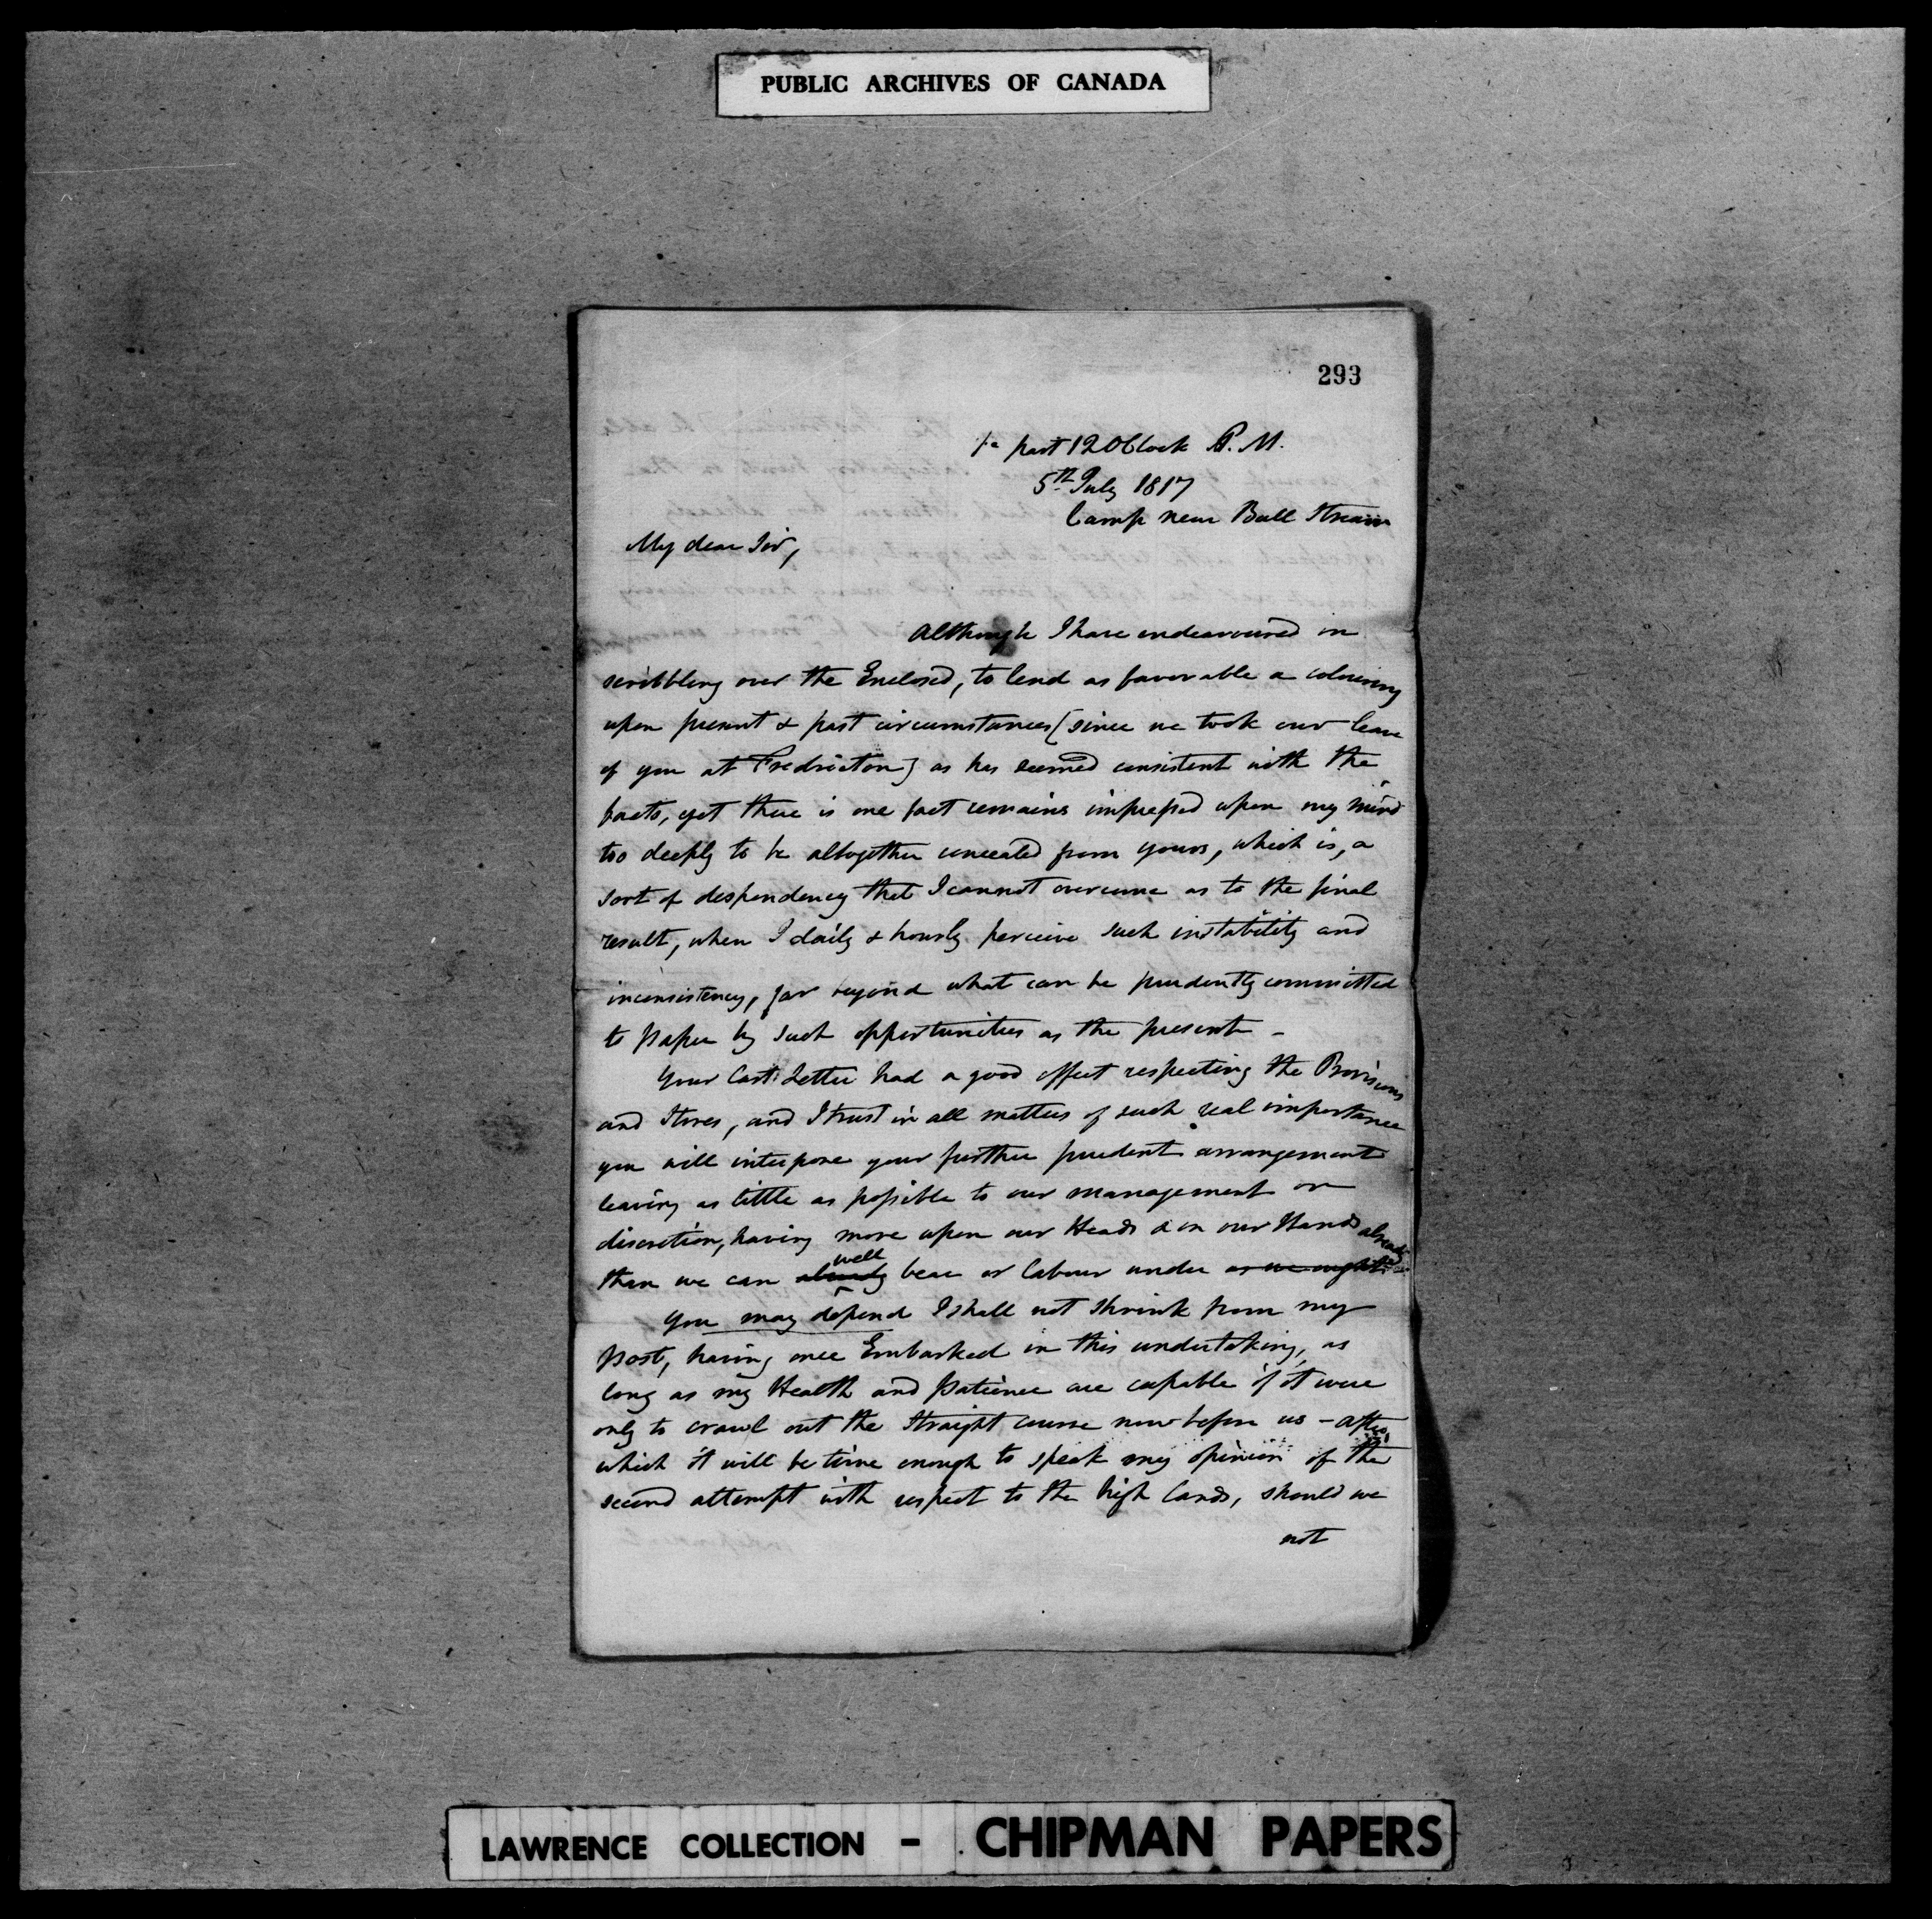 PUBLIC ARCHIVES OF CANADA
293
past 12 OClock P.M.
5th July 1817
Camp near Ball Stream
My dear Sir,
Although I have endeavoured in
scribbling over the Enclosed, to lend as favorable a colouring
upon present & past circumstances (since we took our leave
of you at Fredricton) as has seemed consistent with the
facts, yet there is one fact remains impressed upon my mind
too deeply to be altogether concealed from yours, which is, a
sort of despondency that I cannot overcome as to the final
result, when I daily & hourly perceive such instability and
inconsistency, far beyond what can be prudently committed
to paper by such opportunities as the present -
Your last Letter had a good effect respecting the Provisions
and Stores, and I trust in all matters of such real importance
you will interpose your further prudent arrangements
leaving as little as possible to our management or
discretion, having more upon our Heads & on our Hands already
than we can already well bear or labour under as we ought
You may depend I shall not shrink from my
post, having once Embarked in this undertaking, as
long as my Health and patience are capable if it were
only to crawl out the Straight course now before us - after
which it will be time enough to speak my opinion of the
second attempt with respect to the high lands, should we
not
LAWRENCE COLLECTION - CHIPMAN PAPERS